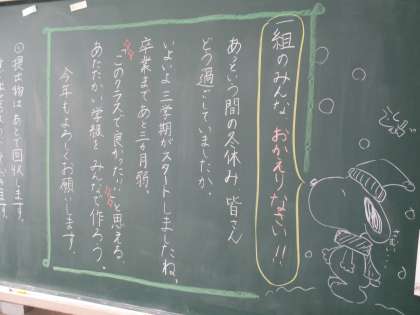 一組のみんな、おかえりなさい!!
あっという間の冬休み 皆さん
どう過ごしていましたか。
いよいよ三学期がスタートしましたね。
卒業まであと三ヶ月弱。
"このクラスで良かった!!"と思える
あたたかい学級をみんなで作ろう。
今年もよろしくお願いします。
提出物はあとで回収します。